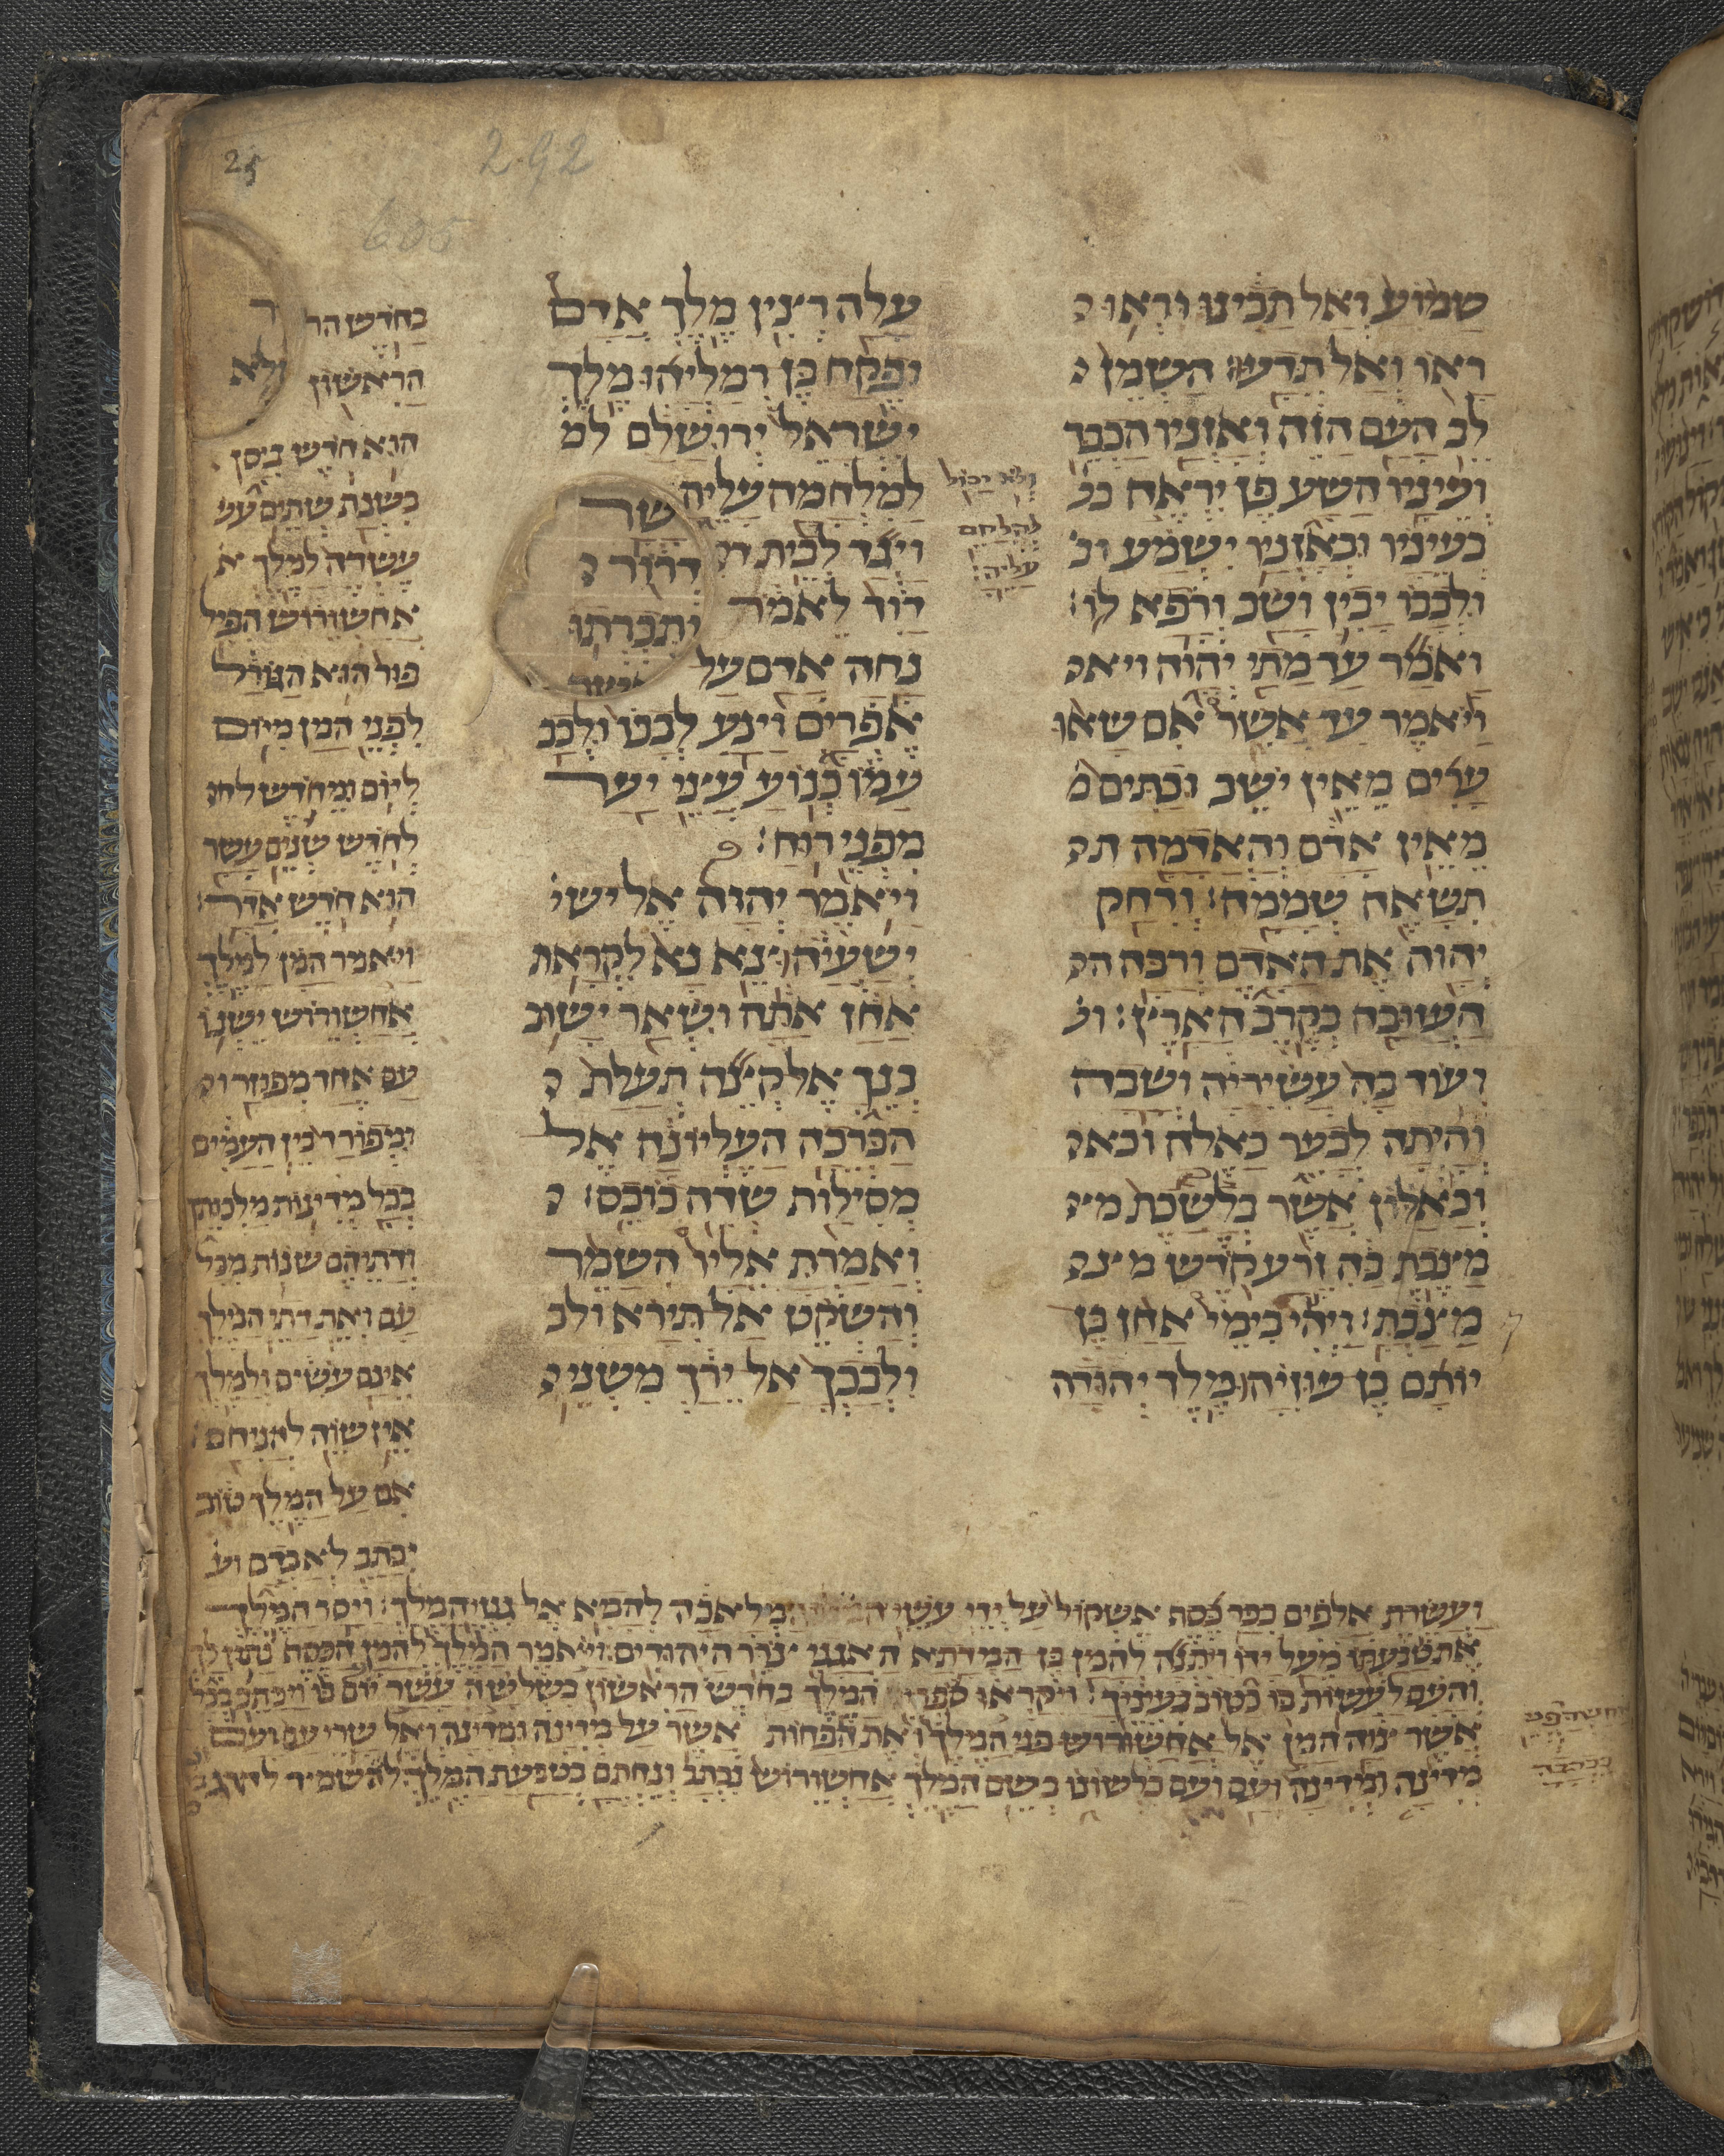 25
292
605
שמוע ואל תבינו וראו
ראו ואל תדעו׃ השמן
לב העם הזה ואזניו הכבד
ועיניו השע פן יראה בב
בעיניו ובאזניו ישמע וב
ולבבו יבין ושב ורפא לו׃
ואמר עד מתי יהוה ויא
ויאמר עד אשר אם שאו
ערים מאין ישב ובתים מ
מאין אדם והאדמה ת
תשאה שממה׃ ורחק
יהוה את האדם ורבה ה
העזובה בקרב הארץ׃ וב
ועוד בה עשיריה ושבה
והיתה לבער כאלה וכא
וכאלון אשר בלשכת מצ
מצבת בה זרע קדש מצב
מצבתה׃ ויהי בימי אחז בן
יותם בן עוזיהו מלך יהודה
עלה רצין מלך ארם
ופקח בן רמליהו מלך
ישראל ירושלם למ
למלחמה עליה
ולא יכול
להלחם
עליה׃
ויגד לבית ד
דוד לאמר
נחה ארם על
אפרים וינע לבבו ולבב
עמו כנוע עיצי יער
מפני רוח׃ פ
ויאמר יהוה אל ישע
ישעיהו צא נא לקראת
אחז אתה ושאר ישוב
בנך אל קצה תעלת
הברכה העליונה אל
מסילות שדה כובס׃
ואמרת אליו השמר
והשקט אל תירא ולב
ולבבך אל ירך משני
בחדש הר
הראשון
הוא חדש ניסן
בשנת שתים עש
עשרה למלך א
אחשורוש הפיל
פור הוא הגורל
לפני המן מיום
ליום ומחדש לח
לחדש שנים עשר
הוא חדש אדר׃
ויאמר המן למלך
אחשורוש ישנו
עם אחד מפוזר ו
ומפורד בין העמים
בכל מדינות מלכותך
ודתיהם שונות מכל
עם ואת דתי המלך
אינם עושים ולמלך
אין שוה להניחם׃
אם על המלך טוב
יכתב לאבדם וע
ועשרת אלפים ככר כסף אשקול על ידי עשי המלאכה להביא אל גנזי המלך׃ ויסר המלך
את טבעתו מעל ידו ויתנה להמן בן המדתא האגגי צורר היהודים׃ ויאמר המלך להמן הכסף נתון לך
והעם לעשות בו כטוב בעיניך׃ ויקראו ספרי המלך בחדש הראשון בשלשה עשר יום בו ויכתב ככל
אשר צוה המן אל אחשדרפני המלך ואת הפחות אשר על מדינה ומדינה ואל שרי עם ועם
מדינה ומדינה ועם ועם כלשונו בשם המלך אחשורוש נכתב ונחתם בטבעת המלך להשמיד להרג
ככתבה